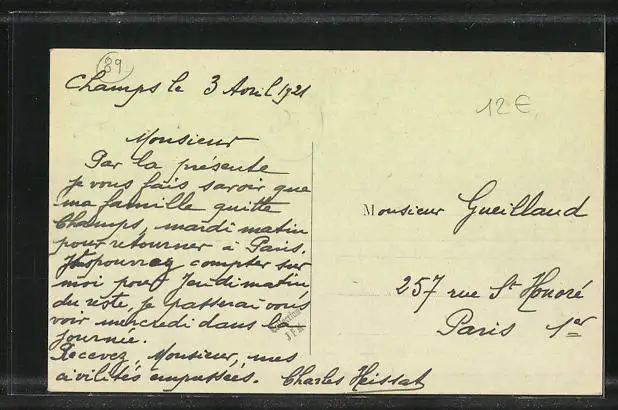 89
Champs le 3 Avril 1921
12 €
Monsieur
Par la présente
je vous fais savoir que
ma famille quitte
Champs, mardi matin
pour retourner à Paris.
compter sur
moi pour Jeudi matin,
du reste, je passerai vous
voir mercredi dans la
journée.
Recevez, Monsieur, mes
civilités empressées. Charles
Monsieur Gueilland
257 rue St Honoré
Paris 1er